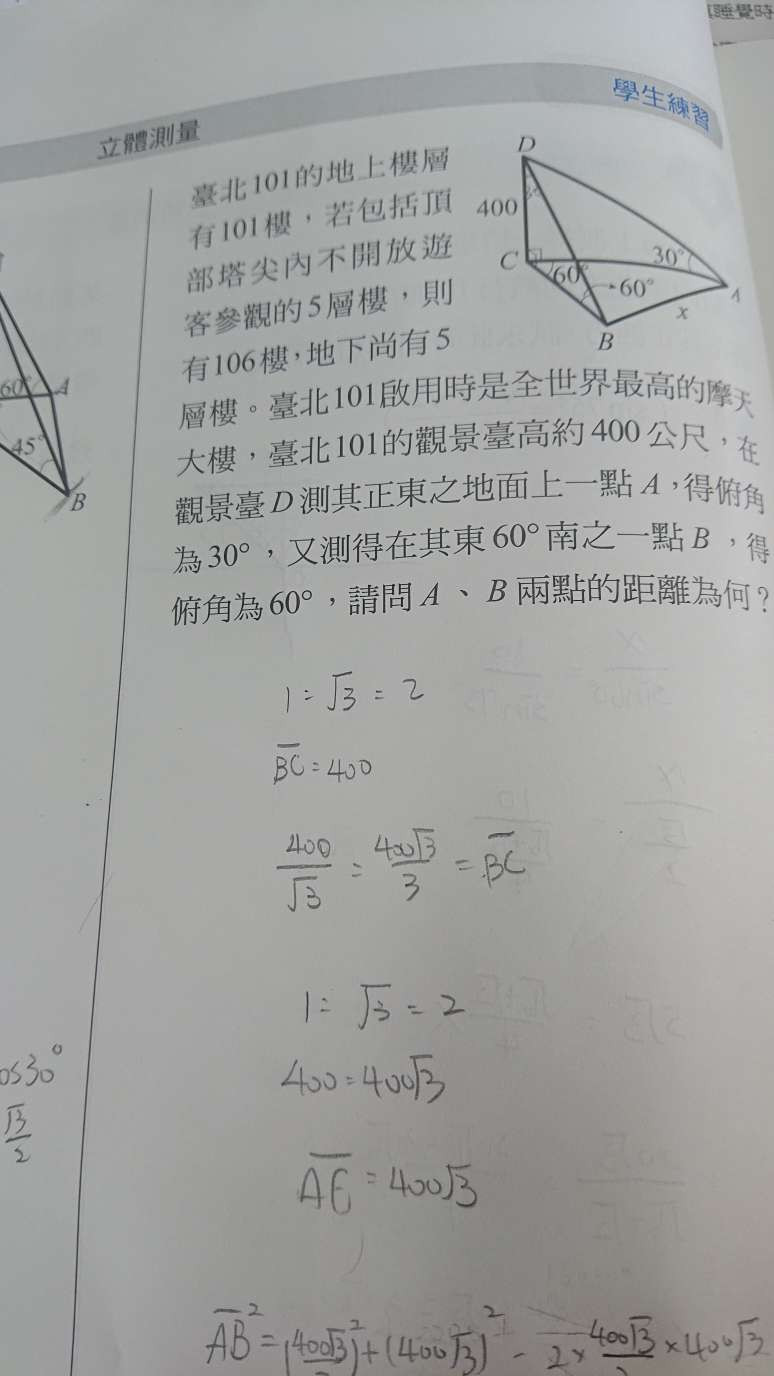 睡覺時
學生練習
立體測量
臺北101的地上樓層
有101樓，若包括頂
部塔尖內不開放遊
客參觀的5層樓，則
有106樓，地下尚有5
層樓。臺北101啟用時是全世界最高的摩天
大樓，臺北101的觀景臺高約400公尺，在
觀景臺D測其正東之地面上一點A，得俯角
為30°，又測得在其東60°南之一點B，得
俯角為60°，請問A、B兩點的距離為何？
D
400
C
30°
60°
60°
A
x
B
60°
A
45°
B
1:√3=2
BC=400
400/√3=400√3/3=BC
1:√3=2
400=400√3
AC=400√3
os30°
√3/2
AB²=(400√3)²+(400√3)²-2×400√3×400√3